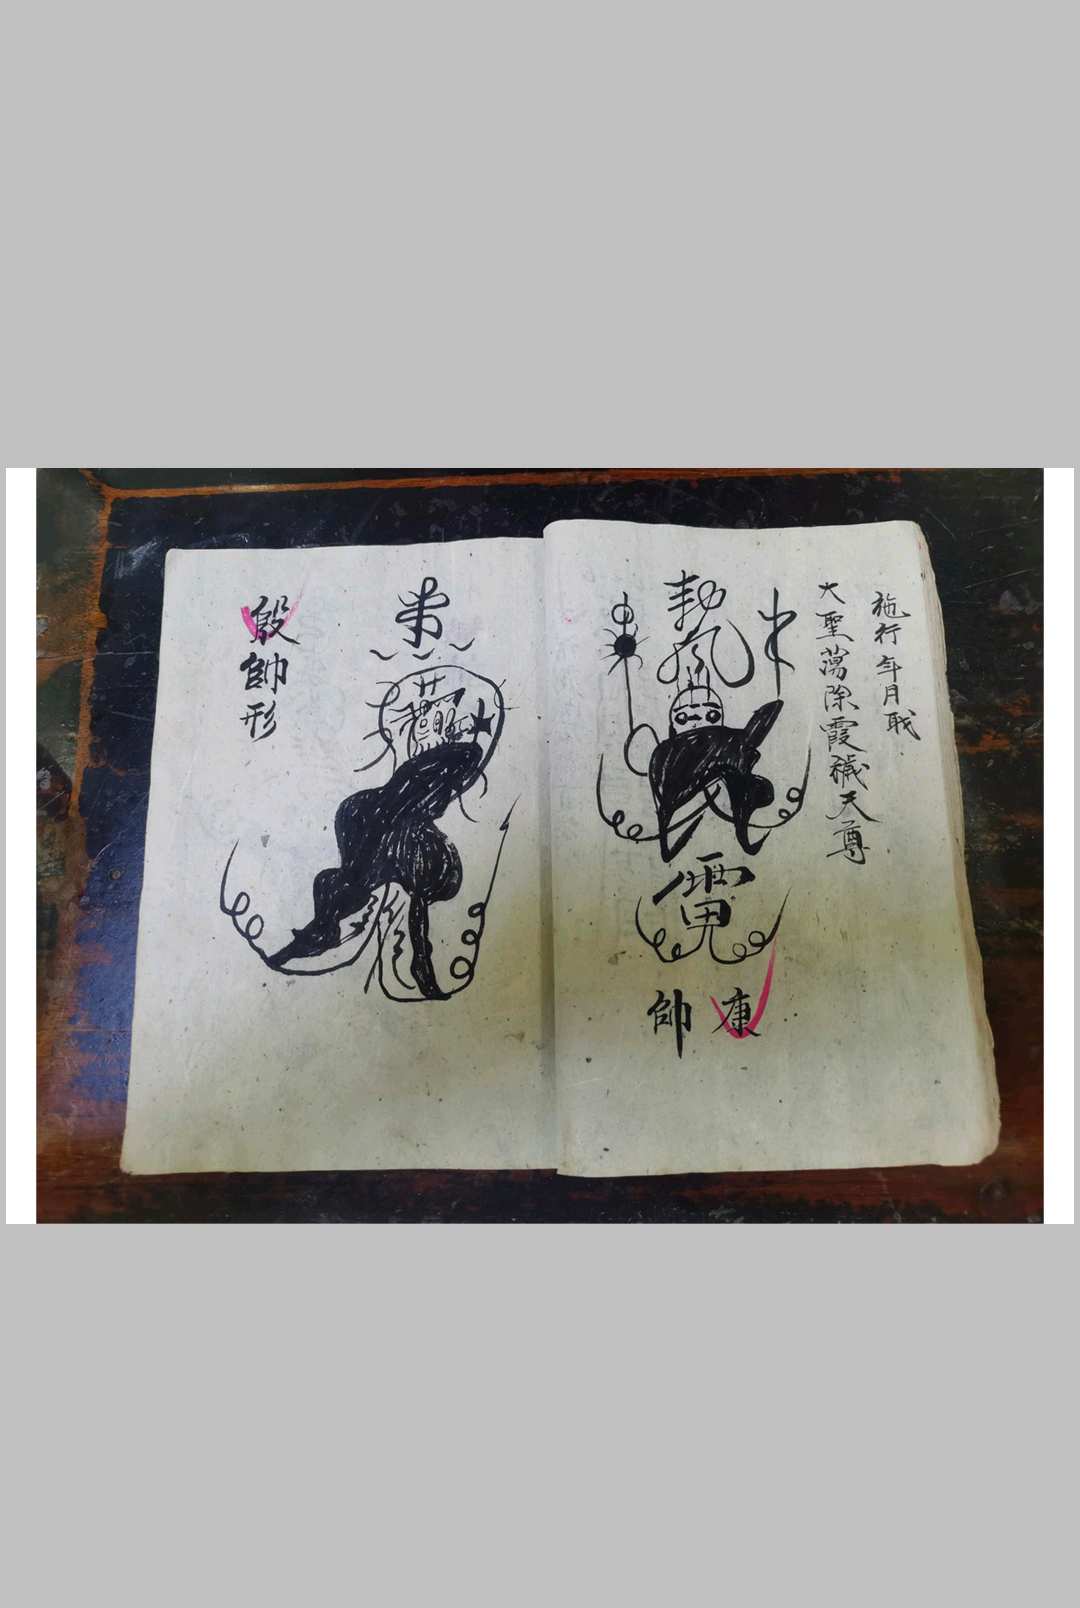 施行年月戢
大聖蕩除霞穢天尊
勅
康
帥
殷帥形